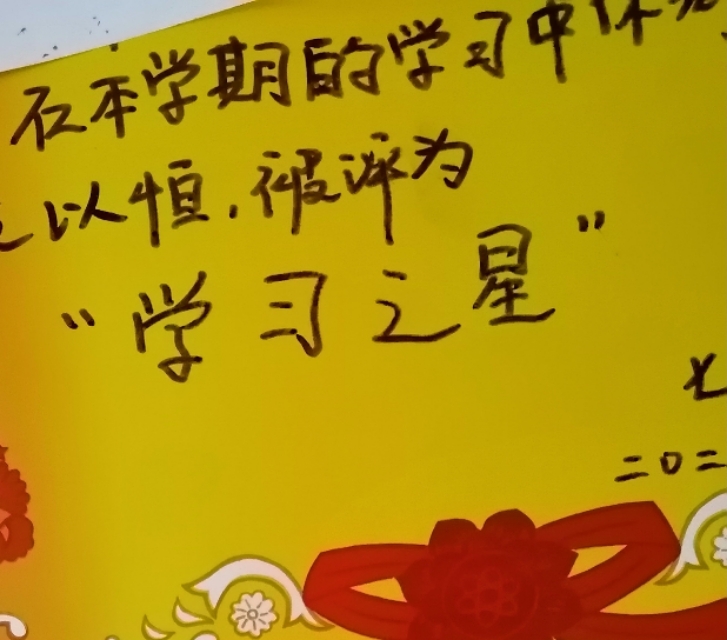 在本学期的学习中
之以恒，被评为
“学习之星”
二〇二